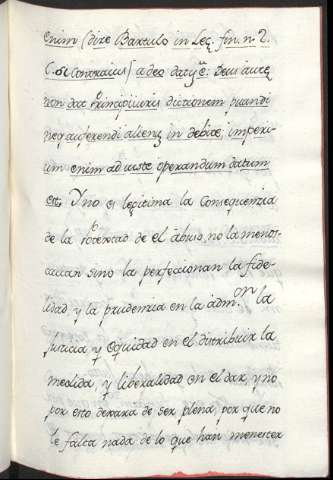 enim (dixe Bartulo in Leg. fin. n. 2.
C. si Contrarius) a deo datus: Deus autem
non dat Principi iuris dictionem puniendi
neq auferendi aliena in debite, imperi-
um enim ad iuste operandum datum
est. Y no es legitima la Consequenzia
de la Potestad de el abuso, no la menos-
cavan sino la perfeccionan la fide-
lidad y la prudencia en la adm.on la
Justicia y Equidad en el distribuir la
medida, y liberalidad en el dar, y no
por esto dexara de ser plena, por que no
le falta nada de lo que han menester